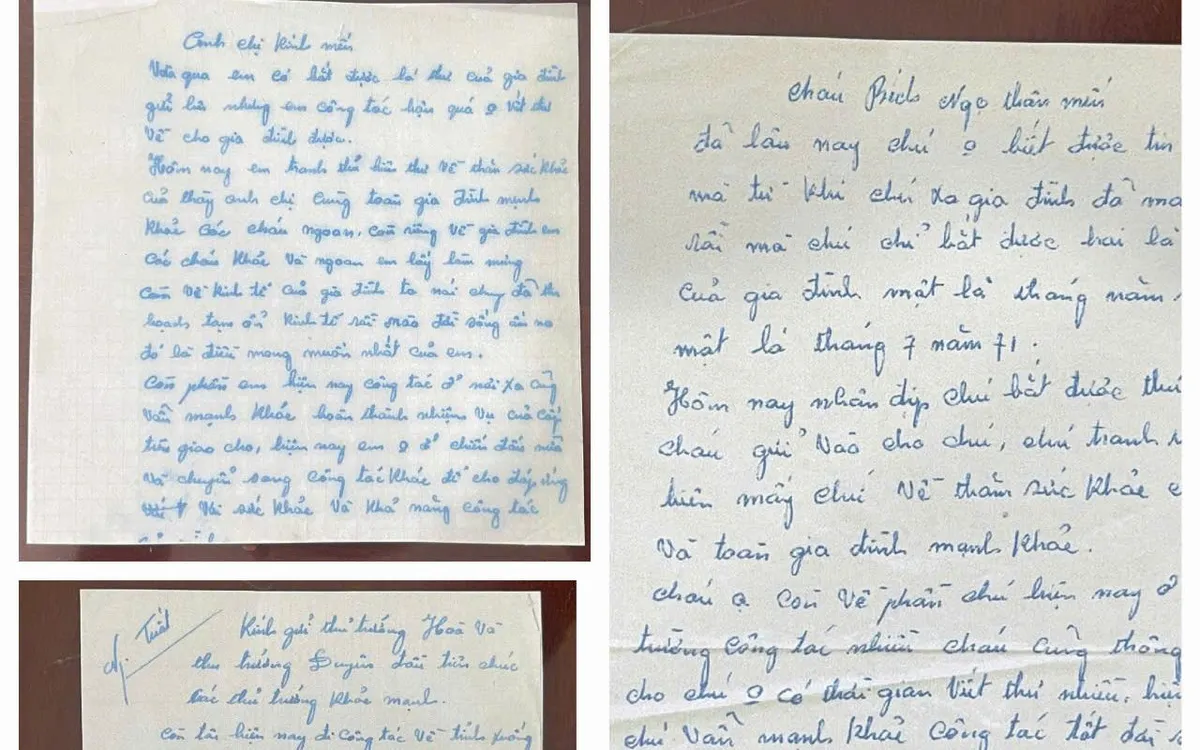 Anh chị kính mến
Vừa qua em có bắt được lá thư của gia đình
gửi
nhưng em công tác bận quá 0 viết thư
về cho gia đình được.
Hôm nay em tranh thủ biên thư về thăm sức khỏe
của thầy anh chị cùng toàn gia đình mạnh
khỏe các cháu ngoan, còn riêng về gia đình em
các cháu khỏe và ngoan em lấy làm mừng
còn về kinh tế của gia đình ta nói chung đã thu
hoạch tạm ổn kinh tế dồi dào đời sống ấm no
đó là điều mong muốn nhất của em.
Còn phần em hiện nay công tác ở nơi xa cũng
vẫn mạnh khỏe hoàn thành nhiệm vụ của cấp
trên giao cho, hiện nay em 0 ở chiến đấu nữa
và chuyển sang công tác khác để cho đáp ứng
với sức khỏe và khả năng công tác
Kính gửi thủ trưởng Hoà và
thủ trưởng Duyên đầu tiên chúc
các thủ trưởng khỏe mạnh.
Còn tôi hiện nay đi công tác về tỉnh xuống
cháu Bích Ngọ thân mến
đã lâu nay chú 0 biết được tin
mà từ khi chú xa gia đình đã
rồi mà chú chỉ bắt được hai lá
của gia đình một lá tháng năm
một lá tháng 7 năm 71.
Hôm nay nhân dịp chú bắt được thư
cháu gửi vào cho chú, chú tranh
biên mấy chữ về thăm sức khỏe
và toàn gia đình mạnh khỏe.
cháu ạ còn về phần chú hiện nay ở
trường công tác nhiều cháu cũng thông
cho chú 0 có thời gian viết thư nhiều, hiện
chú vẫn mạnh khỏe công tác tốt